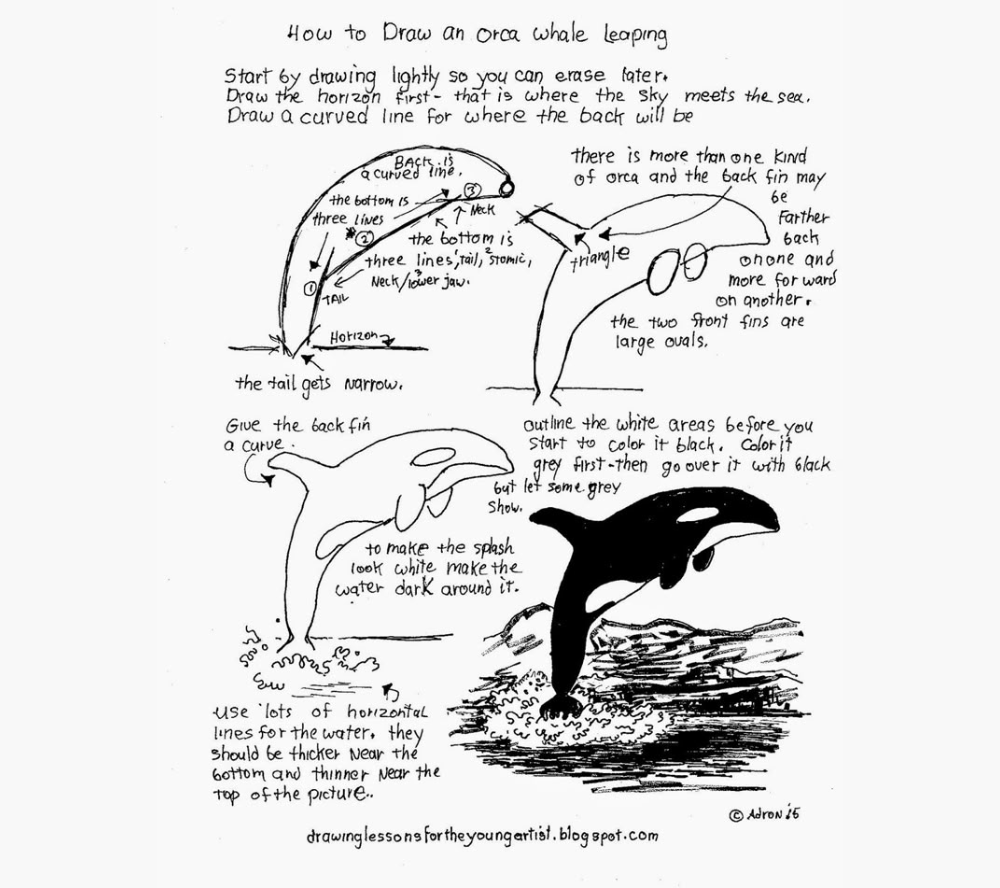 How to Draw an Orca Whale Leaping
Start by drawing lightly so you can erase later.
Draw the horizon first - that is where the sky meets the sea.
Draw a curved line for where the back will be
BACK is
a curved line.
the bottom is
three lines
③
Neck
②
the bottom is
three lines, 'tail, ²stomic,
Neck/³lower jaw.
①
TAIL
Horizon
the tail gets narrow.
there is more than one kind
of orca and the back fin may
be
farther
back
on one and
more forward
on another.
triangle
the two front fins are
large ovals.
Give the back fin
a curve.
to make the splash
look white make the
water dark around it.
use lots of horizontal
lines for the water. they
should be thicker near the
bottom and thinner near the
top of the picture..
outline the white areas before you
start to color it black. Color it
grey first - then go over it with black
but let some grey
show.
© Adron '15
drawinglessonsfortheyoungartist.blogspot.com